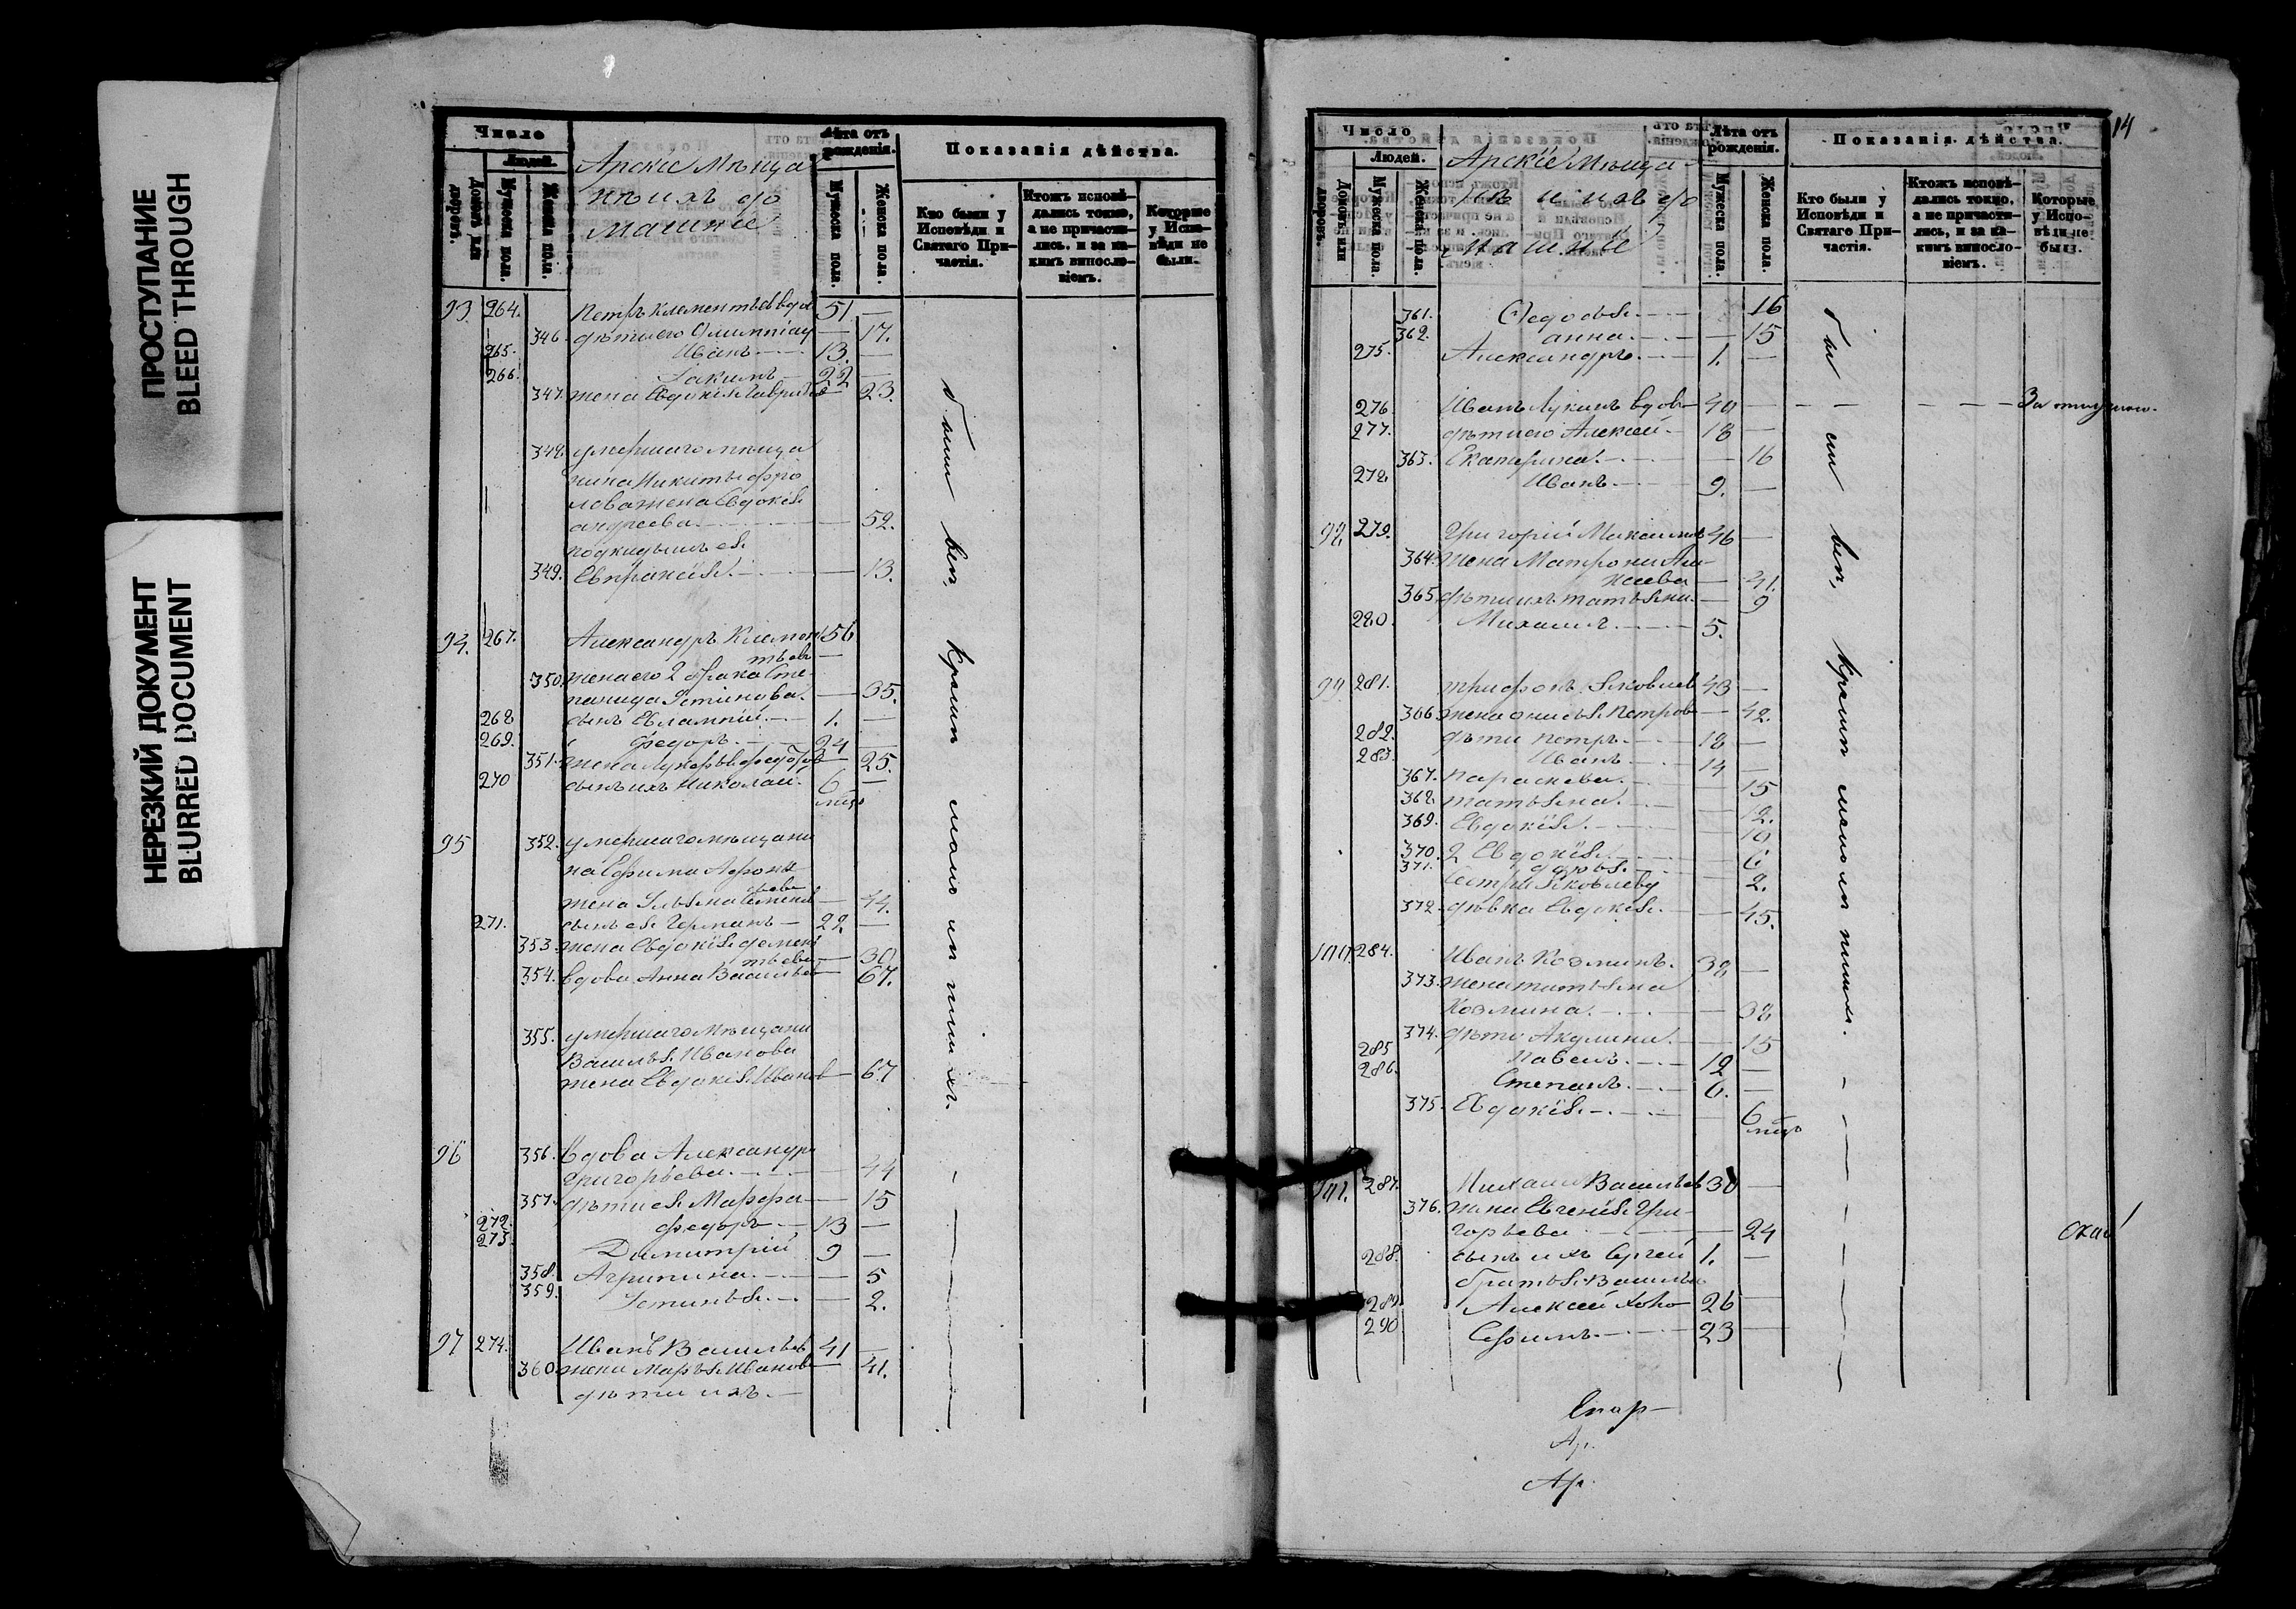 ПРОСТУПАНИЕ
BLEED THROUGH
НЕРЕЗКИЙ ДОКУМЕНТ
BLURRED DOCUMENT
Число
Людей.
Домовъ или дворовъ.
Мужеска пола.
Женска пола.
Арскіе мѣща
не ихъ до
машніе
Лѣта отъ рожденія.
Мужеска пола.
Женска пола.
Показанія дѣйства.
Кто были у Исповѣди и Святаго При-
частія.
Ктожъ исповѣ-
дались токмо,
а не причасти-
лись, и за ка-
кимъ винosло-
віемъ.
Которые
у Испо-
вѣди не
были.
93. 264. Петръ Клементьевъ вдов 51. —
346. дѣти его Олимпіад — 17.
265. Иванъ 13. —
266. Іакимъ 22 —
347. жена Евдокія Гаврил — 23.
348. умершаго мѣща
нина Никиты Фро
лова жена Евдокія
андреева. — 52.
подкидышъ ея
349. Евпраксія. — 13.
94. 267. Александръ Климен 56
тьевъ —
350. жена его 2 брака Сте
панида Устинова. — 35.
268 сынъ Евлампій. 1. —
269. Федоръ. 24 —
351. жена Лукерья Федоров — 25.
270 сынъ ихъ Николай. 6 —
мѣс
95 352. умершаго мѣщани
на Ефима Афона
сьева
жена Ульяна Семенов — 74.
271. сынъ ея Германъ — 22 —
353. жена Евдокія демен
тьева — 30
354. вдова Анна Васильев — 67.
355. умершаго мѣщани
Василья Иванова
жена Евдокія Иванов — 67
96 356. Вдова Александра
Григорьева. 44
357. дѣти ея Марфа — 15
272. федоръ 13 —
273. Димитрій 9 —
358. Агрипина. — 5
359. Устинья. — 2.
97 274. Иванъ Васильевъ 41 —
360. жена Марья Иванов — 41.
дѣти ихъ. —
были вси, кромѣ малолѣтнихъ.
14
Число
Людей.
Домовъ или дворовъ.
Мужеска пола.
Женска пола.
Арскіе мѣща
не и ихъ до
машніе
Лѣта отъ рожденія.
Мужеска пола.
Женска пола.
Показанія дѣйства.
Кто были у
Исповѣди и
Святаго При-
частія.
Ктожъ исповѣ-
дались токмо,
а не причасти-
лись, и за ка-
кимъ винosло-
віемъ.
Которые
у Испо-
вѣди не
были.
361. Федосья. 16
362. анна. — 15
275. Александръ. 1. —
276. Иванъ Лукинъ вдовъ 40 — За отлучкою.
277. дѣти его Алексей. 18 —
363. Екатерина. — 16
278 Иванъ. 9. —
98 279. Григорій Максимов 46 —
364. Жена Матрона Але-
ксеева — 41.
365. дѣти ихъ татьяна. — 9
280. Михаилъ. 5.
99 281. трифонъ Яковлев 43 —
366. жена онисья Петров — 42.
282. дѣти петръ. 18 —
283. Иванъ 14 —
367. параскева. — 15
368. татьяна. — 12.
369. Евдокія. — 10
370. 2 Евдокія. — 6
371. дарья. — 2.
Сестра Яковлеву
372. дѣвка Евдокія. — 45.
100. 284. Иванъ Козминъ. 38 —
373. жена татьяна
Козмина. — 38
374. дѣти Акулина. — 15
285 Павелъ. 12 —
286. Степанъ. 6. —
375. Евдокія. — 6
мѣс
101. 287. Михаил Васильев 30 —
376. жена Евгенія Гри-
горьева — 24
288. сынъ ихъ Сергей 1. —
братья Василье
289. Алексей холо 26 —
290 Ефимъ. 23 —
были вси, кромѣ малолѣтнихъ.
Ар.
Ар.